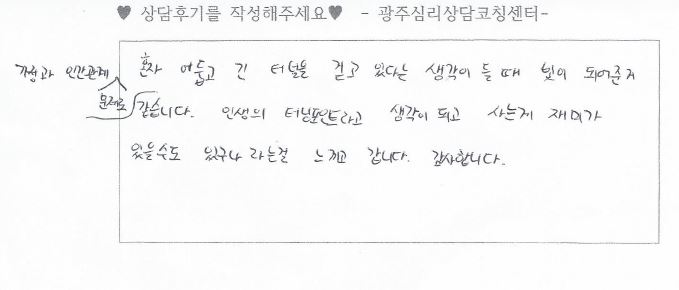 ♥ 상담후기를 작성해주세요♥ - 광주심리상담코칭센터-
가정과 인간관계 문제로
혼자 어둡고 긴 터널을 걷고 있다는 생각이 들 때 빛이 되어준거
같습니다. 인생의 터닝포인트라고 생각이 되고 사는게 재미가
있을수도 있구나 라는걸 느끼고 갑니다. 감사합니다.